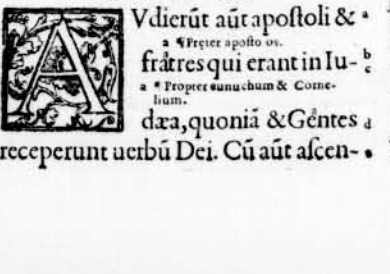 AVdierūt aūt apoſtoli & a
a ¶ Preter apoſto os.
frātres qui erant in Iu- b c
a * Propter eunuchum & Corne-
lium.
dæa, quoniā & Gêntes d
receperunt uerbū Dei. Cū aūt aſcen- e